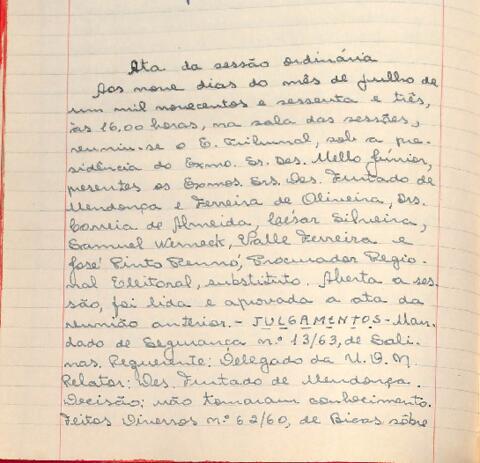 Ata da sessão ordinária
Aos nove dias do mês de julho de
um mil novecentos e sessenta e três,
às 16,00 horas, na sala das sessões,
reuniu-se o E. Tribunal, sob a pre-
sidência do Exmo. Sr. Des. Mello Júnior,
presentes os Exmos. Srs. Des. Furtado de
Mendonça e Ferreira de Oliveira, Drs.
Correia de Almeida, César Silveira,
Samuel Werneck, Valle Ferreira e
José Pinto Rennó, Procurador Regio-
nal Eleitoral, substituto. Aberta a ses-
são, foi lida e aprovada a ata da
reunião anterior. - JULGAMENTOS - Man-
dado de Segurança n.º 13/63, de Sali-
nas. Requerente: Delegado da U. D. N.
Relator: Des. Furtado de Mendonça.
Decisão: não tomaram conhecimento.
Feitos Diversos n.º 62/60, de Bicas sôbre